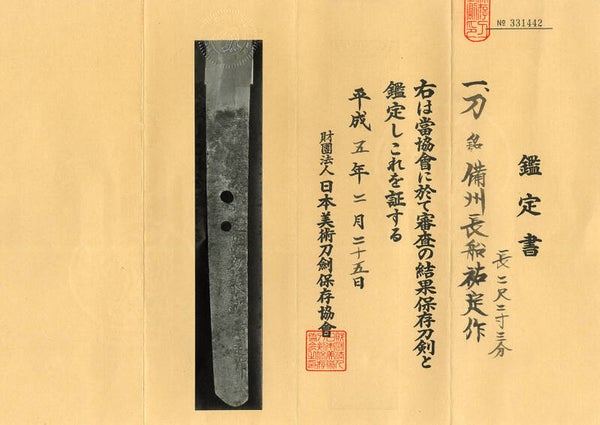 № 331442
鑑定書
一、刀 銘 備州長船祐定作
長二尺二寸三分
右は當協會に於て審査の結果保存刀剣と
鑑定しこれを証する
平成五年二月二十五日
財團法人 日本美術刀劍保存協會